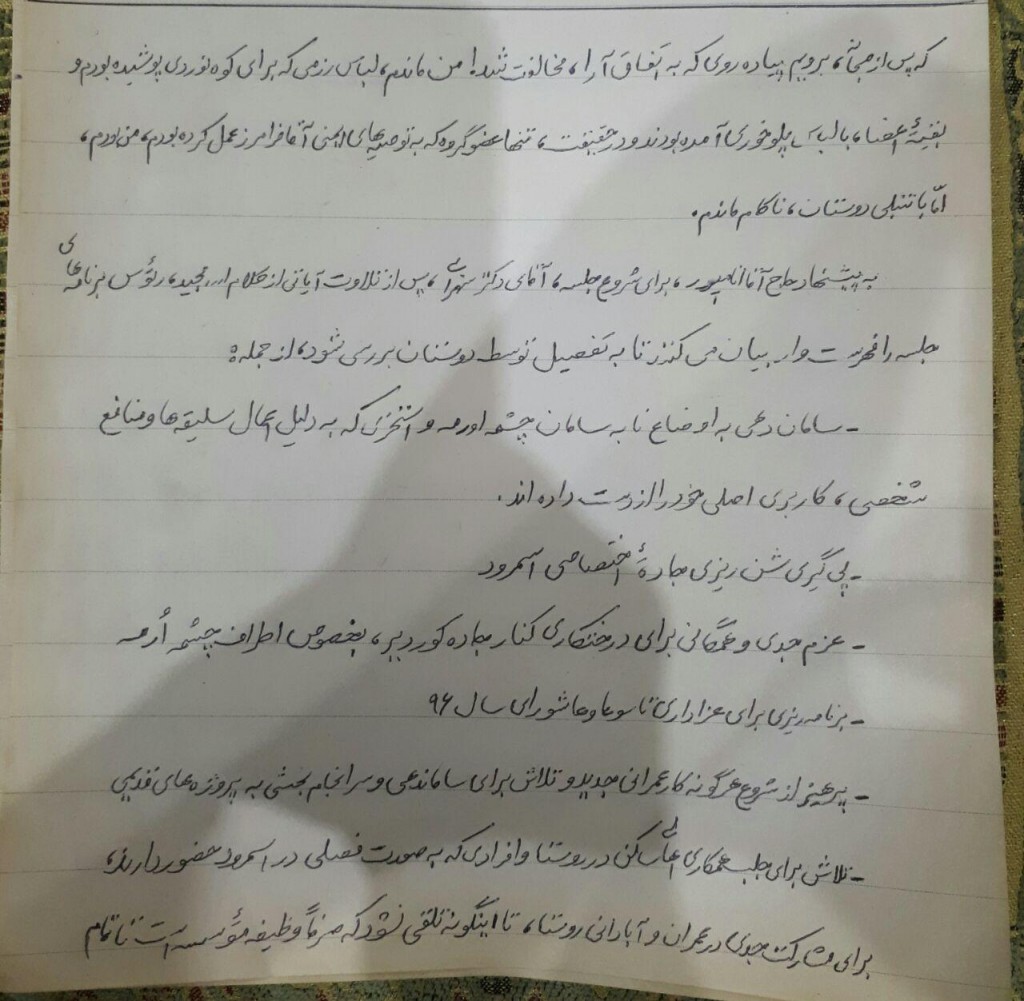 که پس از صبحانه، برویم پیاده روی که به اتفاق آراء، مخالفت شد! من ماندم، لباس رزمی که برای کوه نوردی پوشیده بودم و
بقیهٔ اعضاء، با لباس پلوخوری آمده بودند و در حقیقت، تنها عضو گروه که به توصیه های ایمنی آقا فرامرز عمل کرده بودم، من بودم،
امّا با تنبلی دوستان، ناکام ماندم.
به پیشنهاد حاج آقا امانپور، برای شروع جلسه، آقای دکتر تهرانی، پس از تلاوت آیاتی از کلام الله مجید، رئوس برنامه های
جلسه را فهرست وار بیان می کنند تا به تفصیل توسط دوستان بررسی شود، از جمله:
- سامان دهی به اوضاع نا به سامان چشمه اورمه و استخری که به دلیل اعمال سلیقه ها و منافع
شخصی، کاربری اصلی خود را از دست داده اند.
- پی گیری شن ریزی جادهٔ اختصاصی اسمرود
- عزم جدی و همگانی برای درختکاری کنار جاده کوردبر، بخصوص اطراف چشمه اُرمه
- برنامه ریزی برای عزاداری تاسوعا و عاشورای سال ۹۶
- پرهیز از شروع هرگونه کار عمرانی جدید و تلاش برای ساماندهی و سرانجام بخشی به پروژه های قدیمی
- تلاش برای جلب همکاری اهالی ساکن در روستا و افرادی که به صورت فصلی در اسمرود حضور دارند،
برای مشارکت جدی در عمران و آبادانی روستا، تا اینگونه تلقی نشود که صرفاً وظیفه مؤسسه است تا تمام